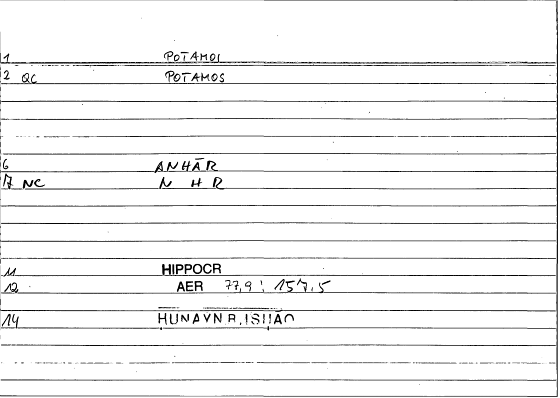 1 POTAMOI
2 QC POTAMOS
6 ANHĀR
7 NC N H R
11 HIPPOCR
12 AER 77,9 ; 157.5
14